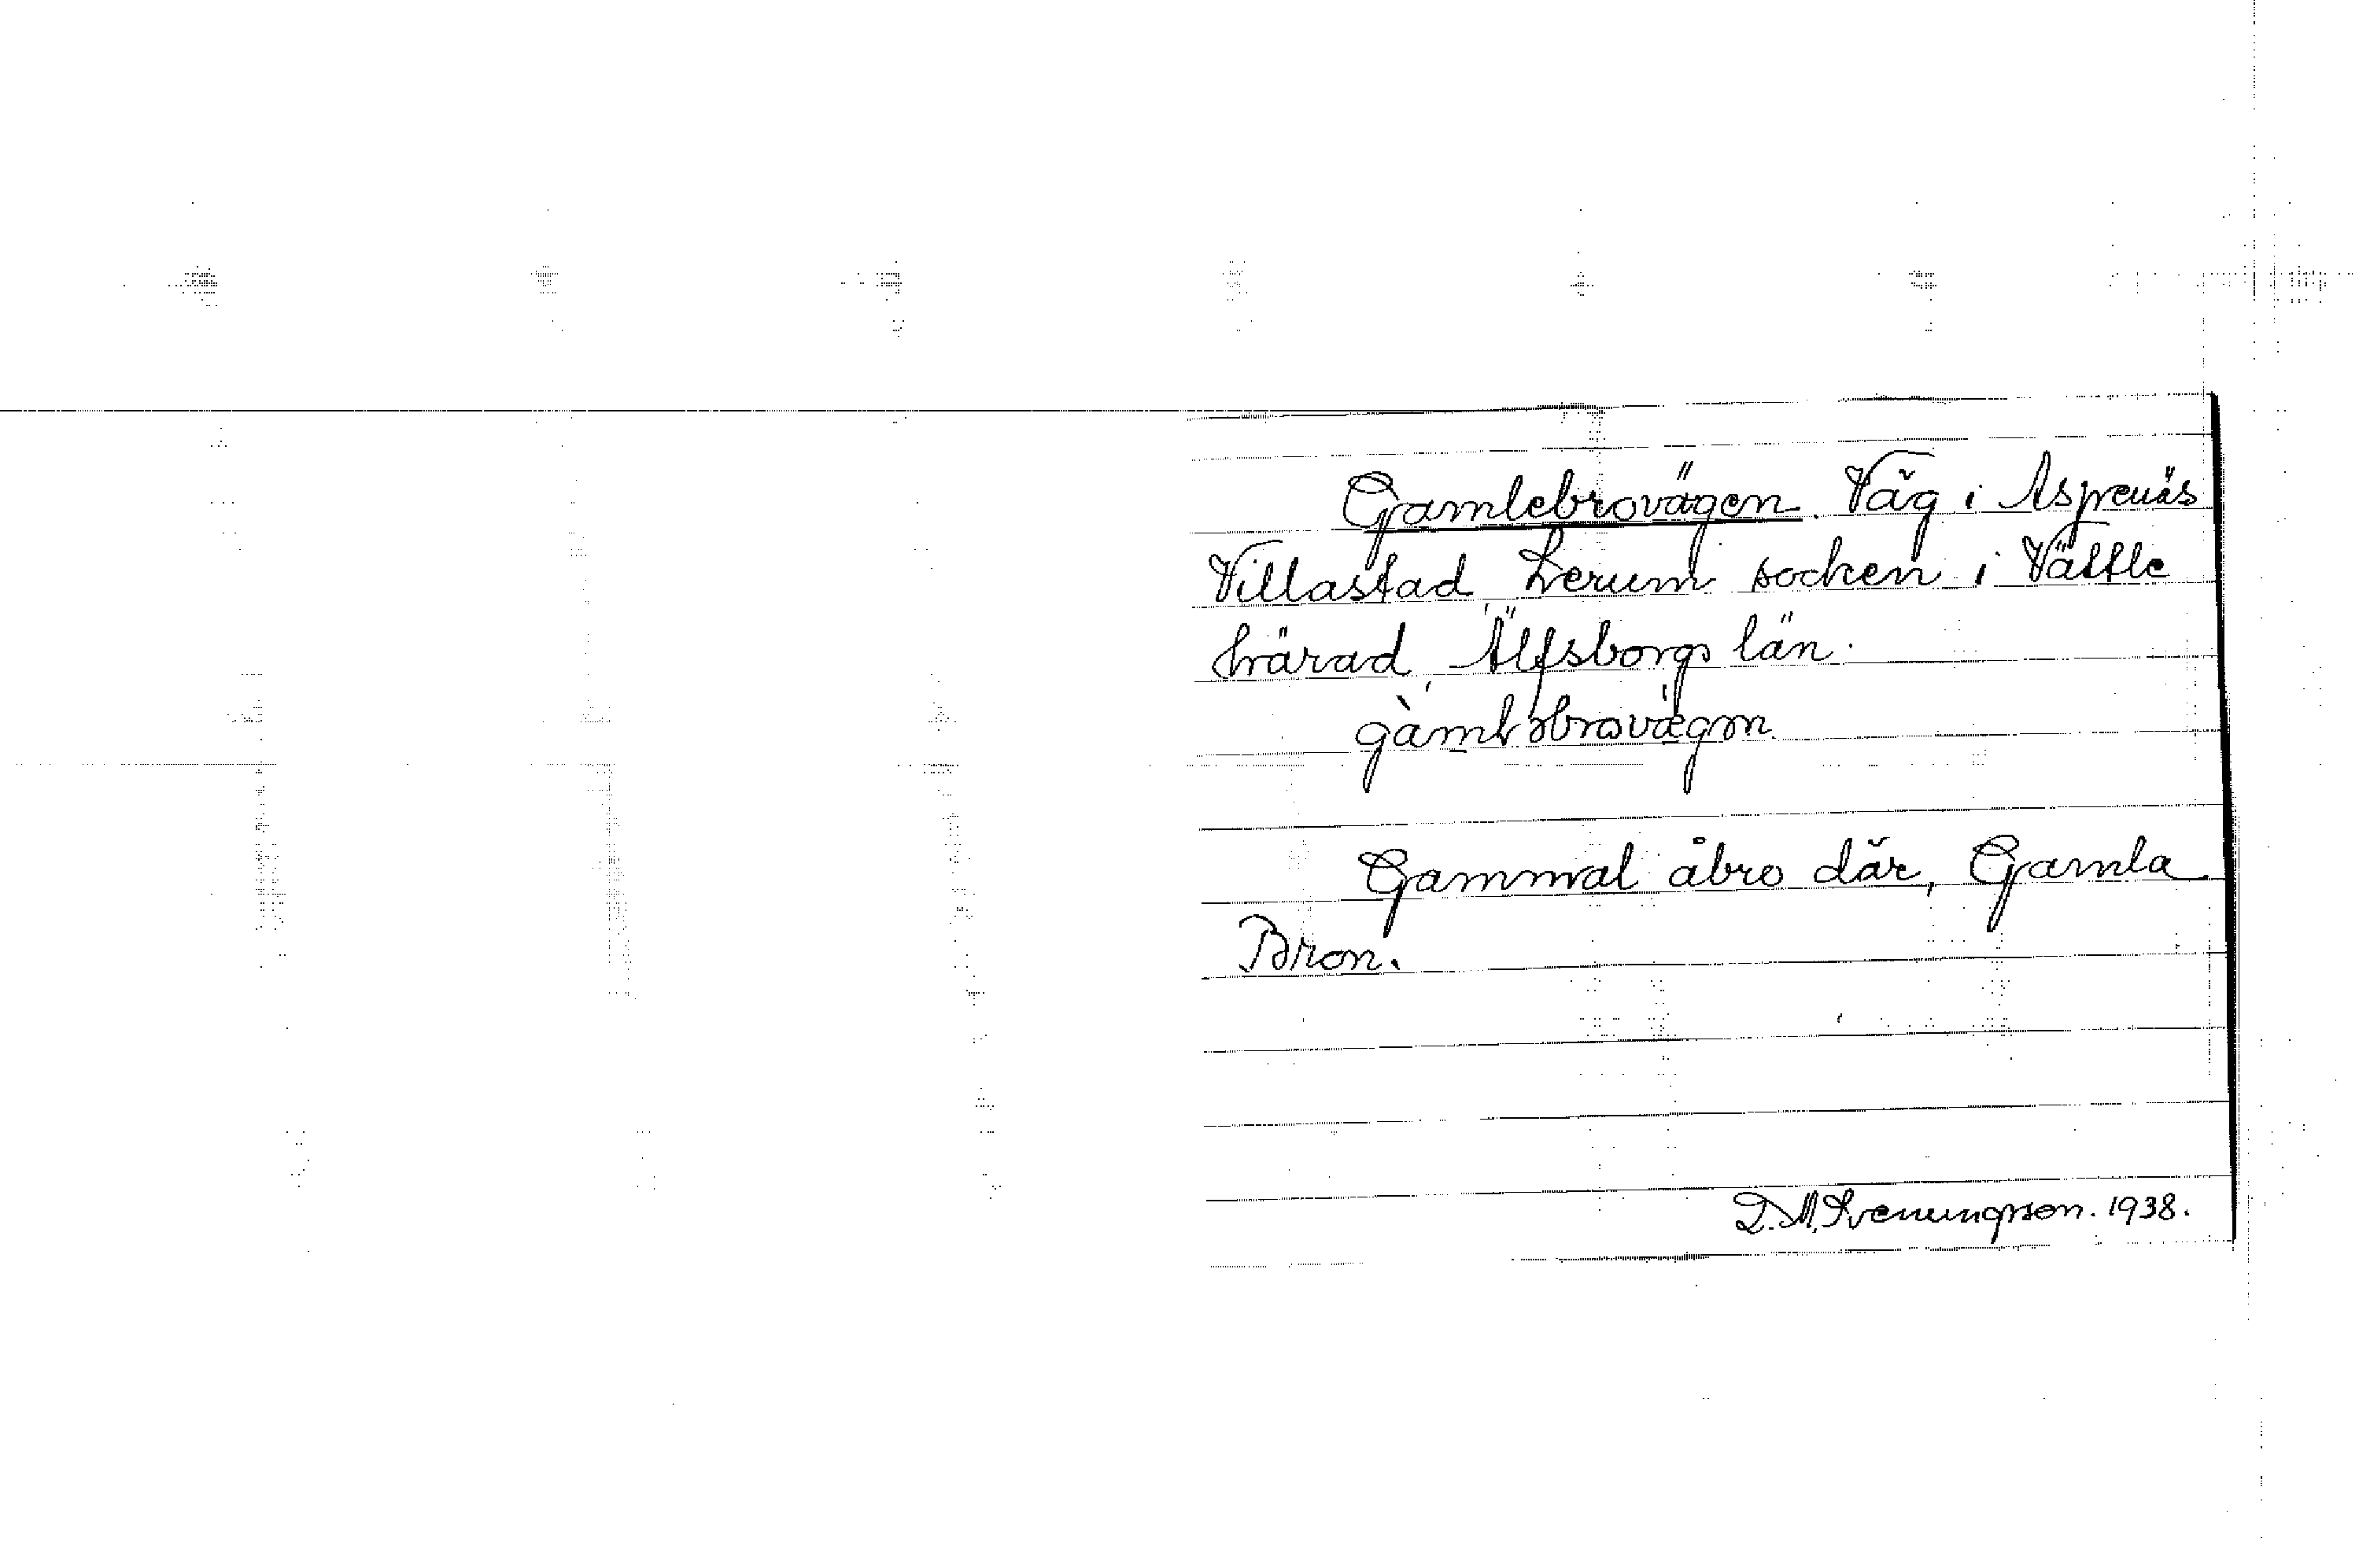 Gamlebrovägen. Väg i Aspenäs
Villastad, Lerum socken i Vättle
härad, Älfsborgs län.
Gammal åbro där, Gamla
Bron.
D. M. Svenungsson. 1938.